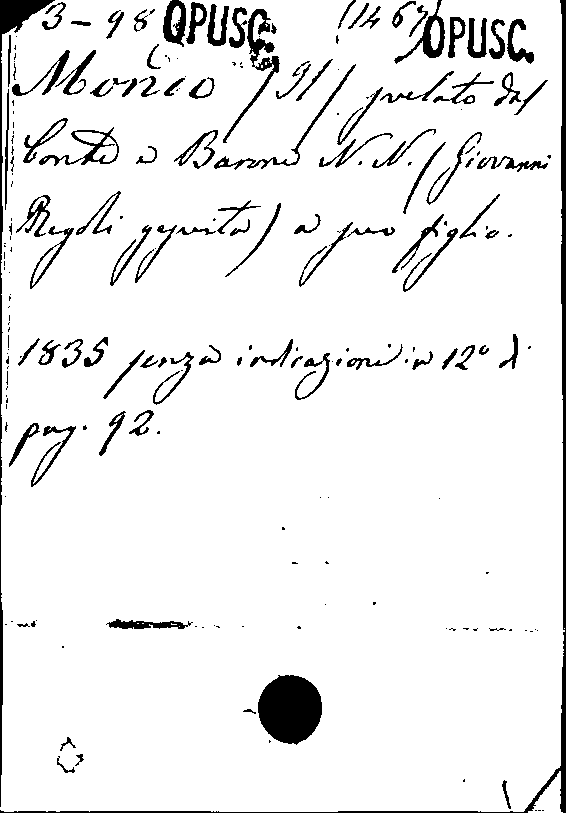 3-98 OPUSC. (1467) OPUSC.
Mondo (Il) svelato dal
Conte e Barone N. N. (Giovanni
Regoli gesuita) a suo figlio.
1835 senza indicazioni in 12° di
pag. 92.